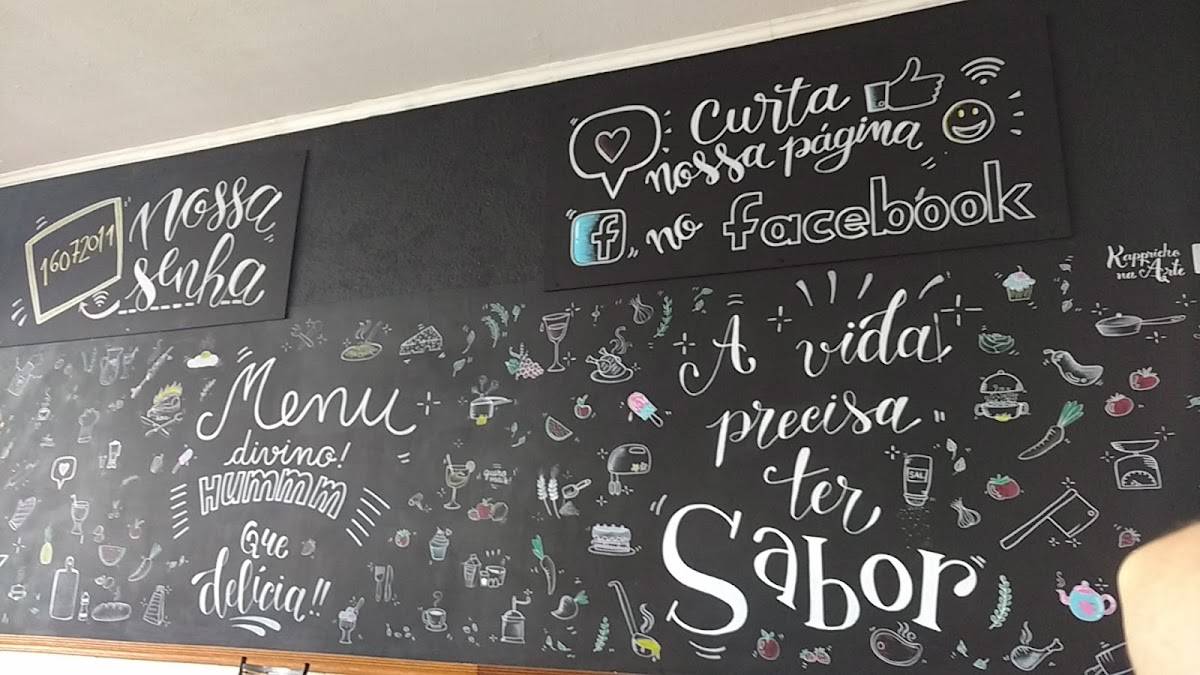 16072011
nossa
senha
Curta
nossa página
no facebook
Kappricho
na Arte
Menu
divino!
HUMMM
Que
delícia!!
A vida
precisa
ter
Sabor
SAL